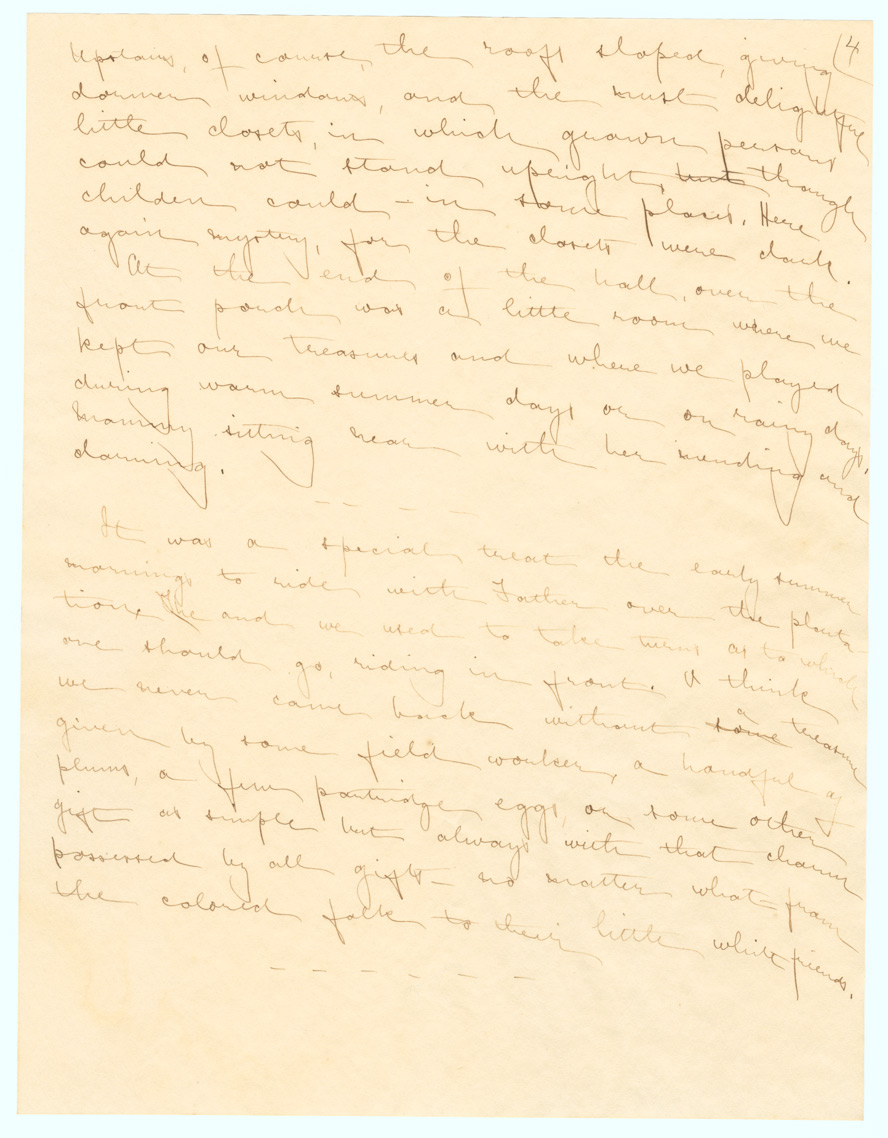 (4
Upstairs, of course, the roofs sloped, giving
dormer windows, and the most delightful
little closets, in which grown persons
could not stand upright, but though
children could – in some places. Here
again mystery, for the closets were dark.
At the end of the hall, over the
front porch was a little room where we
kept our treasures and where we played
during warm summer days or on rainy days,
Mammy sitting near with her mending and
darning.
– – – –
It was a special treat the early summer
mornings to ride with Father over the planta-
tion, He and we used to take turns as to which
one should go, riding in front. I think
we never came back without some a treasure
given by some field worker, a handful of
plums, a few partridge eggs, or some other
gift as simple but always with that charm
possessed by all gifts – no matter what – from
the colored folk to their little white friends.
– – – – – –